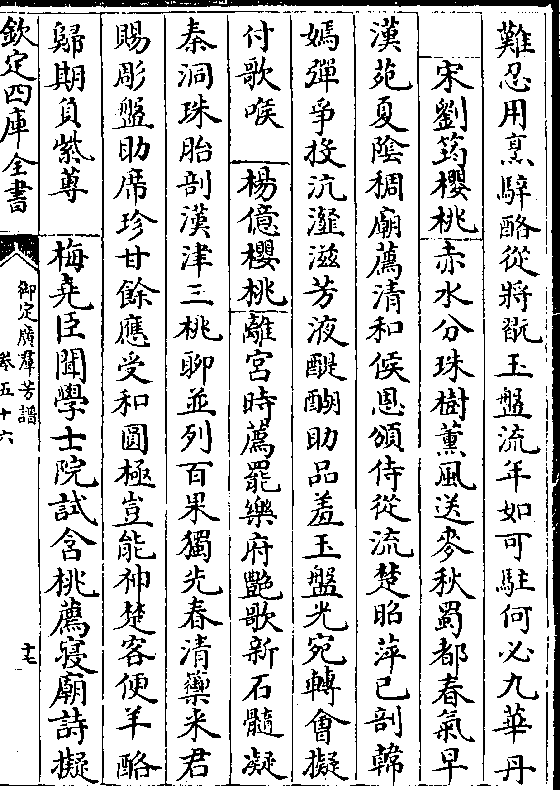 難忍用烹騂酪從將翫玉盤流年如可駐何必九華丹
宋劉筠櫻桃赤水分珠樹薰風送麥秋蜀都春氣早
漢苑夏陰稠廟薦清和候恩頒侍從流楚昭萍已剖韓
嫣彈爭投沆瀣滋芳液醍醐助品羞玉盤光宛轉會擬
付歌喉 楊億櫻桃離宮時薦罷樂府艷歌新石髓凝
秦洞珠胎剖漢津三桃聊並列百果獨先春清籞来君
賜彫盤助席珍甘餘應受和圓極豈能神楚客便羊酪
歸期負紫蓴 梅堯臣聞學士院試含桃薦寢廟詩擬
欽定四庫全書
御定廣羣芳譜
卷五十六
十七